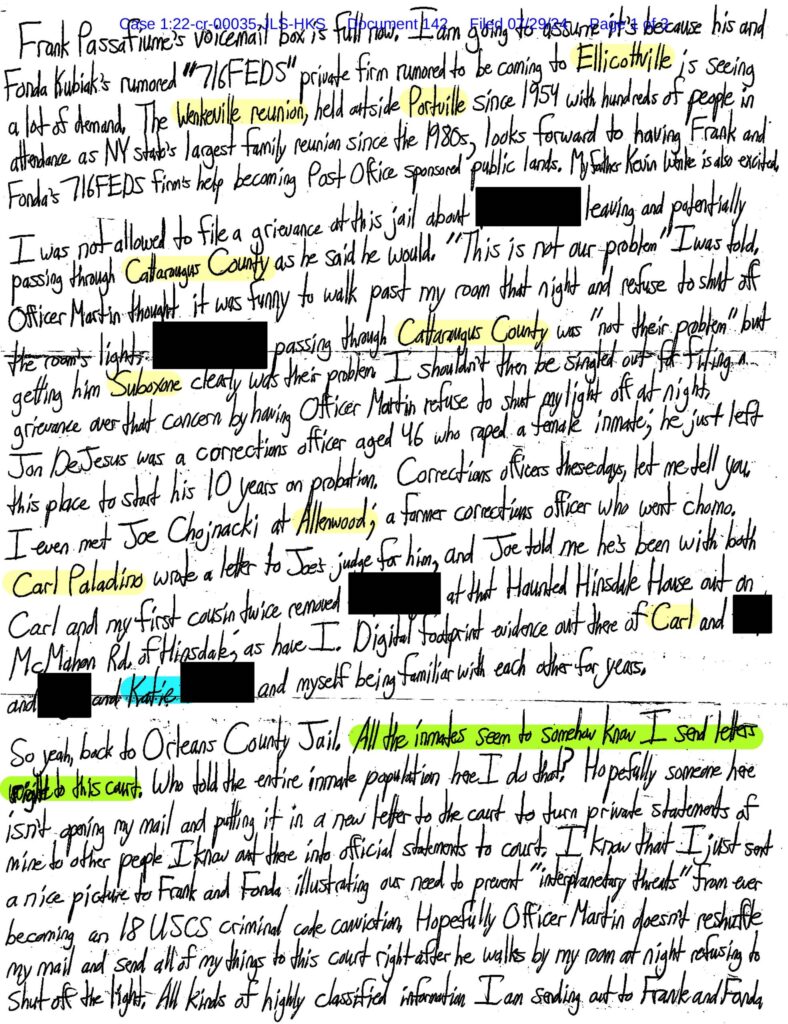 Case 1:22-cr-00035-JLS-HKS Document 142 Filed 07/29/24 Page 1 of 3
Frank Passafiume's voicemail box is full now. I am going to assume it's because his and
Fonda Kubiak's rumored "716FEDS" private firm rumored to be coming to Ellicottville is seeing
a lot of demand. The Wenkeville reunion, held outside Portville since 1954 with hundreds of people in
attendance as NY state's largest family reunion since the 1980s, looks forward to having Frank and
Fonda's 716FEDS firm's help becoming Post Office sponsored public lands. My father Kevin Wenke is also excited.
I was not allowed to file a grievance at this jail about leaving and potentially
passing through Cattaraugus County as he said he would. "This is not our problem" I was told.
Officer Martin thought it was funny to walk past my room that night and refuse to shut off
the room's lights. passing through Cattaraugus County was "not their problem" but
getting him Suboxone clearly was their problem. I shouldn't then be singled out for filing a
grievance over that concern by having Officer Martin refuse to shut my light off at night.
Jon DeJesus was a corrections officer aged 46 who raped a female inmate; he just left
this place to start his 10 years on probation. Corrections officers these days, let me tell you.
I even met Joe Chojnacki at Allenwood; a former corrections officer who went chomo.
Carl Paladino wrote a letter to Joe's judge for him, and Joe told me he's been with both
Carl and my first cousin twice removed at that Haunted Hinsdale House out on
McMahon Rd. of Hinsdale; as have I. Digital footprint evidence out there of Carl and
and and Katie and myself being familiar with each other for years.
So yeah, back to Orleans County Jail. All the inmates seem to somehow know I send letters
right to this court. Who told the entire inmate population here I do that? Hopefully someone here
isn't opening my mail and putting it in a new letter to the court to turn private statements of
mine to other people I know out there into official statements to court. I know that I just sent
a nice picture to Frank and Fonda illustrating our need to prevent "interplanetary threats" from ever
becoming an 18 USCS criminal code conviction. Hopefully Officer Martin doesn't reshuffle
my mail and send all of my things to this court right after he walks by my room at night refusing to
shut off the light. All kinds of highly classified information I am sending out to Frank and Fonda